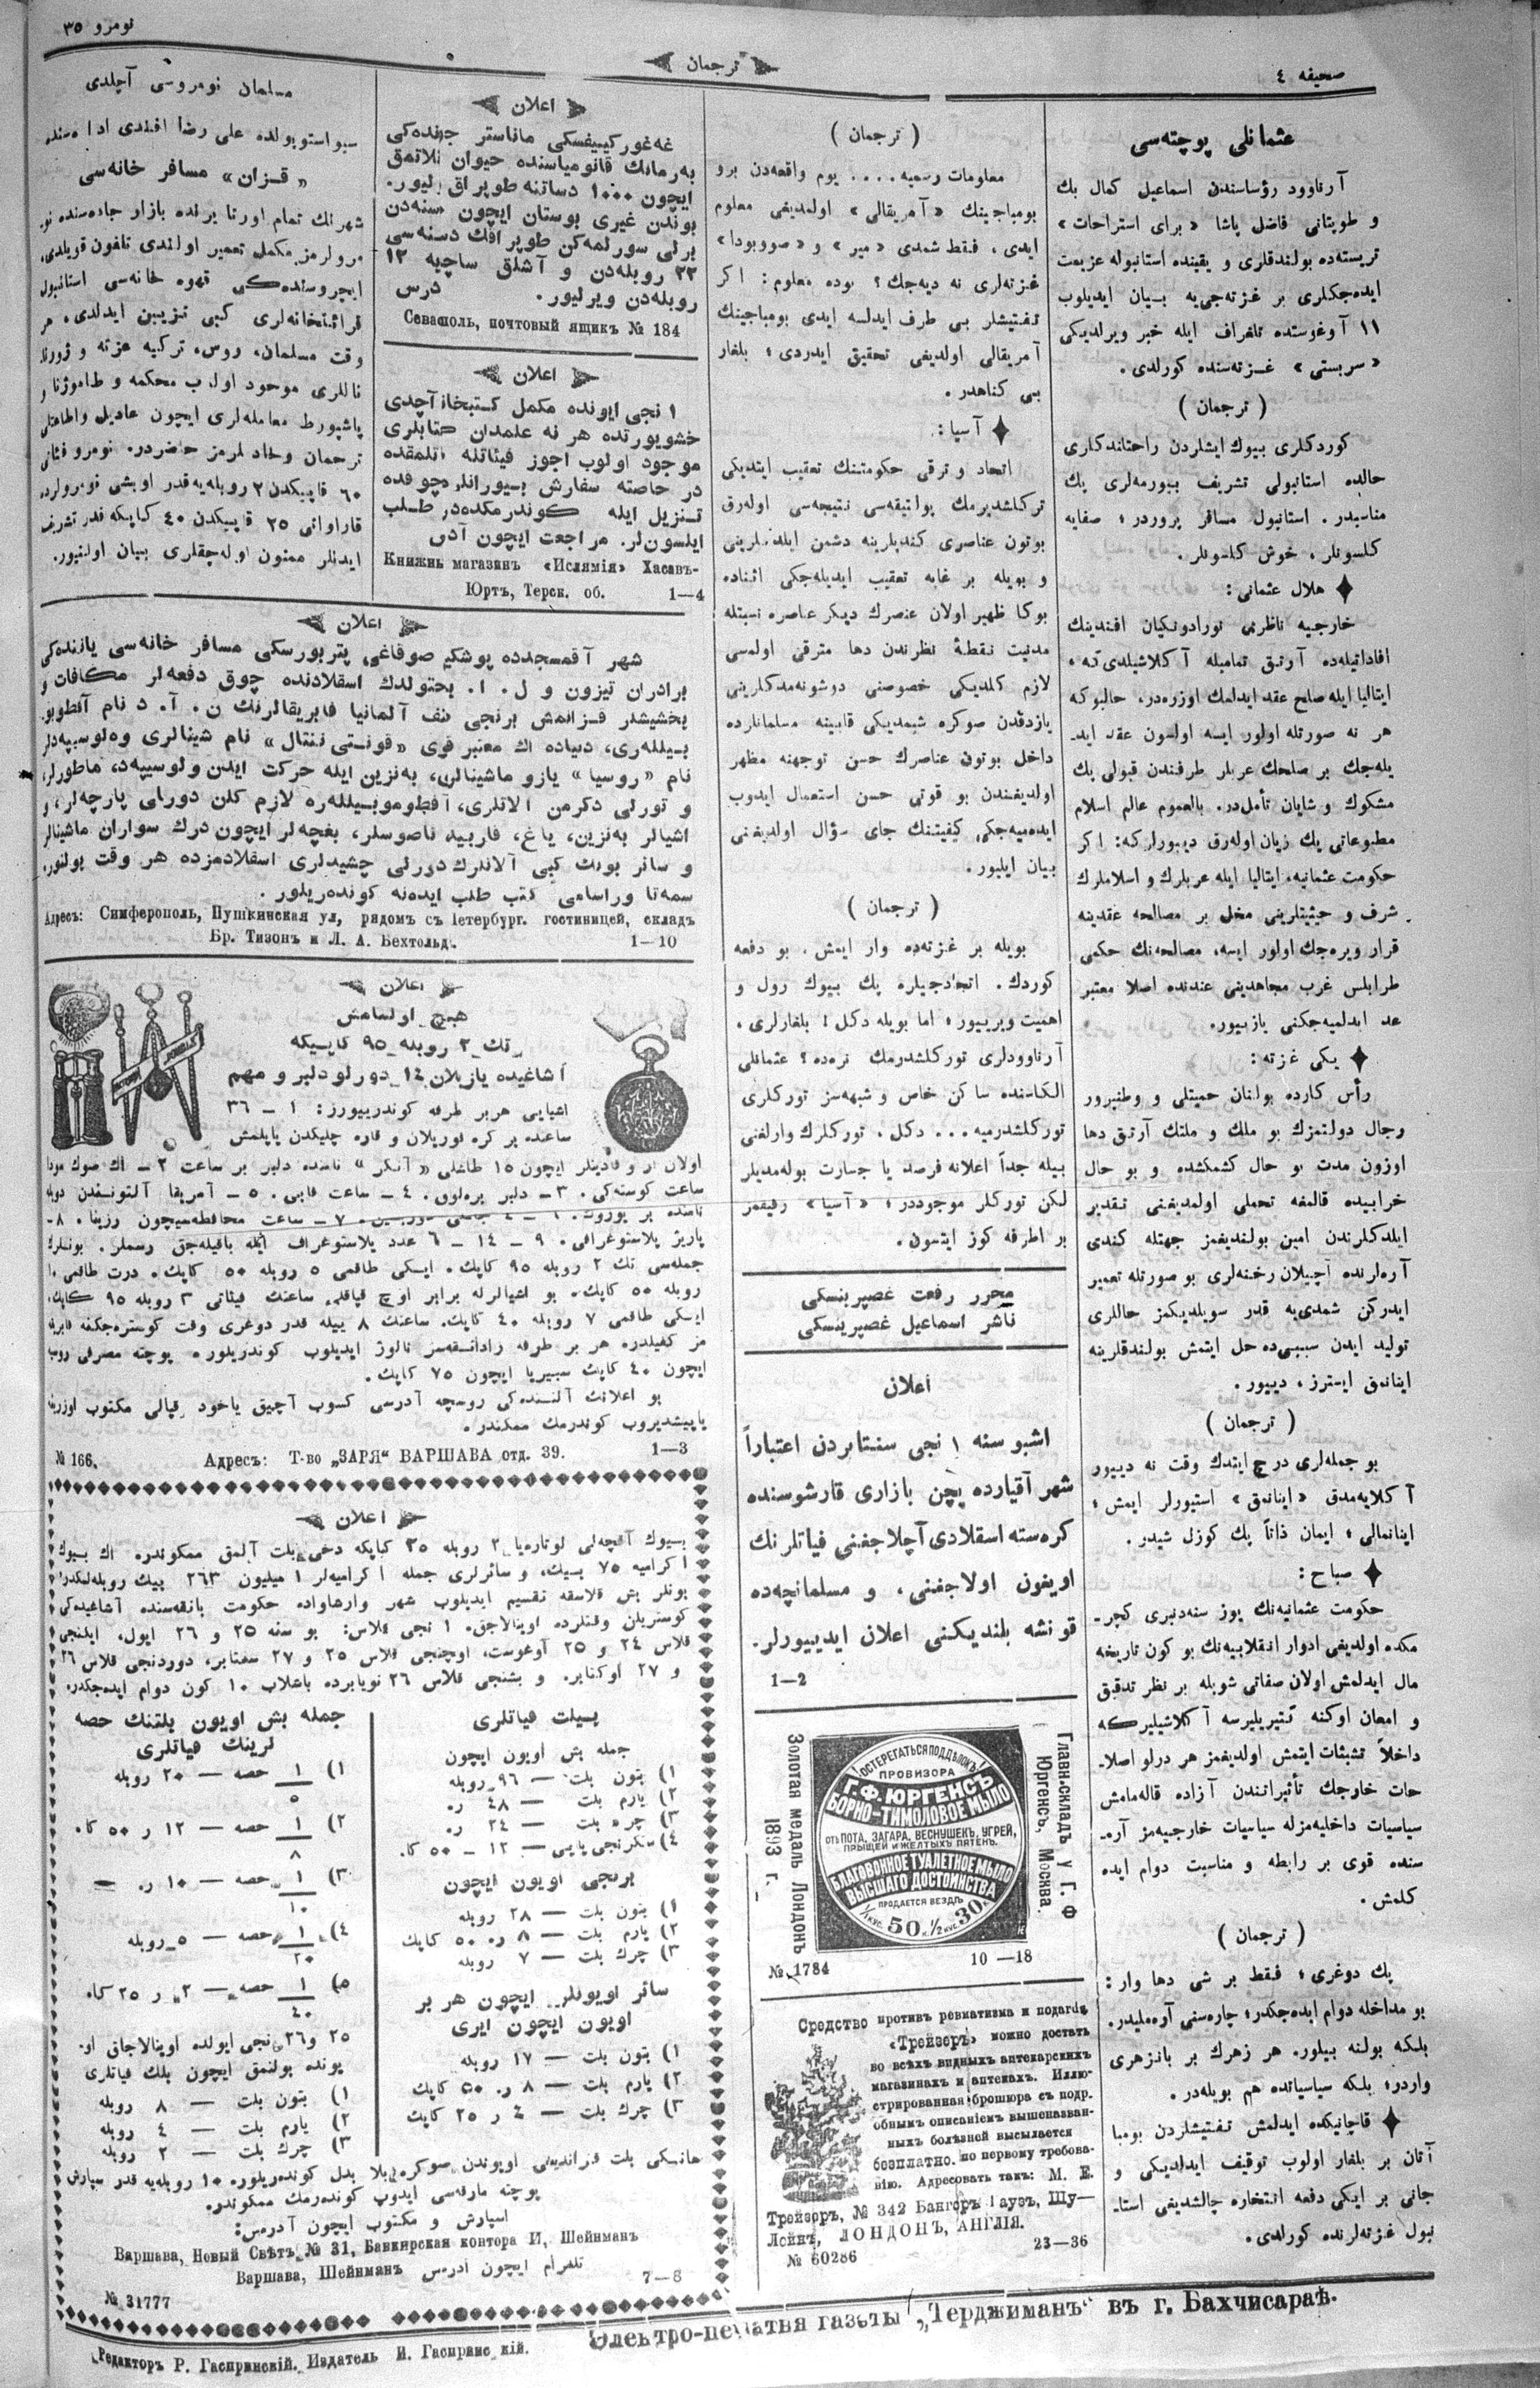 صحیفه ٤
ترجمان
نومرو ٣٥
عثمانلی پوچته‌سی
آرناوود رؤساسندن اسماعیل کمال بك
و طوپتانی فاضل پاشا «برای استراحات»
تریسته‌ده بولندقلری و یقینده استانبوله عزیمت
ایده‌جکلری بر غزته‌جی‌یه بیان ایدیلوب
١١ آوغوستده تلغراف ایله خبر ویرلدیکی
«سربستی» غزته‌سنده کورلدی.
(ترجمان)
کوردکلری بیوك ایشلردن راحتلندکلری
حالده استانبولی تشریف بیورمه‌لری پك
مناسبدر. استانبول مسافر پروردر؛ صفایه
کلسونلر، خوش کلسونلر.
هلال عثمانی:
خارجیه ناظری نورادونکیان افندینك
افاداتیله‌ده آرتق تمامیله آکلاشیلدی که،
ایتالیا ایله صلح عقد ایدلمك اوزره‌در، حالبوکه
هر نه صورتله اولور ایسه اولسون عقد ایدـ
یله‌جك بر صلحك عربلر طرفندن قبولی پك
مشکوك و شایان تأملدر. بالعموم عالم اسلام
مطبوعاتی پك زیان اوله‌رق دییورلرکه: اکر
حکومت عثمانیه، ایتالیا ایله عربلرك و اسلاملرك
شرف و حیثیتلرینی مخل بر مصالحه عقدینه
قرار ویره‌جك اولور ایسه، مصالحه‌نك حکمی
طرابلس غرب مجاهدینی عندنده اصلا معتبر
عد ایدلمیه‌جکنی یازییور.
یکی غزته:
رأس کارده بولنان حمیتلی و وطنپرور
رجال دولتمزك بو ملك و ملتك آرتق دها
اوزون مدت بو حال کشمکشده و بو حال
خرابیده قالمغه تحملی اولمدیغنی تقدیر
ایلدکلرندن امین بولندیغمز جهتله کندی
آره‌لرنده آچیلان رخنه‌لری بو صورتله تعمیر
ایدرکن شمدی‌یه قدر سویلدیکمز حاللری
تولید ایدن سببی‌ده حل ایتمش بولندقلرینه
اینانمق ایسترز، دییور.
(ترجمان)
بو جمله‌لری درج ایتدك وقت نه دییور
آکلایه‌مدق «اینانمق» استیورلر ایمش؛
اینانمالی؛ ایمان ذاتاً پك کوزل شیدر.
صباح:
حکومت عثمانیه‌نك یوز سنه‌دنبری کچرـ
مکده اولدیغی ادوار انقلابیه‌نك بو کون تاریخه
مال ایدلمش اولان صفاتی شویله بر نظر تدقیق
و امعان اوکنه کتیریلیرسه آکلاشیلیرکه
داخلاً تشبثات ایتمش اولدیغمز هر درلو اصلاـ
حات خارجك تأثیراتندن آزاده قاله‌مامش
سیاسیات داخلیه‌مزله سیاسیات خارجیه‌مز آره‌ـ
سنده قوی بر رابطه و مناسبت دوام ایده
کلمش.
(ترجمان)
پك دوغری؛ فقط بر شی دها وار:
بو مداخله دوام ایده‌جکدر؛ چاره‌سنی آره‌ملیدر.
بلکه بولنه بیلور. هر زهرك بر پانزهری
واردر؛ بلکه سیاسیاتده هم بویله‌در.
قاچانیکده ایدلمش تفتیشلردن بومبا
آتان بر بلغار اولوب توقیف ایدلدیکی و
جانی بر ایکی دفعه انتخاره چالشدیغی استاـ
نبول غزته‌لرنده کورلدی.
(ترجمان)
معلومات رسمیه.... یوم واقعه‌دن برو
بومباجینك «آمریقالی» اولمدیغی معلوم
ایدی، فقط شمدی «میر» و «صووبودا»
غزته‌لری نه دیه‌جك؟ بوده معلوم: اکر
تفتیشلر بی طرف ایدلسه ایدی بومباجینك
آمریقالی اولدیغی تحقیق ایدردی؛ بلغار
بی کناهدر.
آسیا:
اتحاد و ترقی حکومتنك تعقیب ایتدیکی
ترکلشدیرمك پولتیقه‌سی نتیجه‌سی اوله‌رق
بوتون عناصری کندیلرینه دشمن ایلدکلرینی
و بویله بر غایه تعقیب ایدیله‌جکی اثناده
بوکا ظهیر اولان عنصرك دیکر عناصره نسبتله
مدنیت نقطهٔ نظرندن دها مترقی اولمسی
لازم کلدیکی خصوصنی دوشونه‌مدکلرینی
یازدقدن صوکره شیمدیکی قابینه مسلمانلرده
داخل بوتون عناصرك حسن توجهنه مظهر
اولدیغندن بو قوتی حسن استعمال ایدوب
ایده‌میه‌جکی کیفیتنك جای سؤال اولدیغنی
بیان ایلیور.
(ترجمان)
بویله بر غزته‌ده وار ایمش. بو دفعه
کوردك. اتحادجیلره پك بیوك رول و
اهمیت ویرییور؛ اما بویله دکل! بلغارلری،
آرناوودلری تورکلشدرمك نره‌ده؟ عثمانلی
الکاسنده ساکن خاص و شبهه‌سز تورکلری
تورکلشدرمیه... دکل، تورکلرك وارلغنی
بیله جداً اعلانه فرصد یا جسارت بوله‌مدیلر
لکن تورکلر موجوددر؛ «آسیا» رفیقمز
بر اطرفه کوز ایتسون.
محرر رفعت غصپرینسکی
ناشر اسماعیل غصپرینسکی
اعلان
اشبو سنه ١ نجی سنتابردن اعتباراً
شهر آقیارده پچن بازاری قارشوسنده
کره‌سته اسقلادی آچلاجغنی فیاتلرنك
اویغون اولاجغنی، و مسلمانچه‌ده
قونشه بلندیکنی اعلان ایدییورلر.
1—2
Главн. складъ у Г. Ф
Юргенсъ, Москва.
ОСТЕРЕГАТЬСЯ ПОДДѢЛОКЪ!
ПРОВИЗОРА
Г. Ф. ЮРГЕНСЪ
БОРНО-ТИМОЛОВОЕ МЫЛО
отъ ПОТА, ЗАГАРА, ВЕСНУШЕКЪ, УГРЕЙ,
ПРЫЩЕЙ И ЖЕЛТЫХЪ ПЯТЕНЪ.
БЛАГОВОННОЕ ТУАЛЕТНОЕ МЫЛО
ВЫСШАГО ДОСТОИНСТВА
ПРОДАЕТСЯ ВЕЗДѢ
1/1 кус. 50 к. 1/2 кус. 30
Золотая медаль Лондонъ
1893 г.
№ 1784
10—18
Средство противъ ревматизма и подагры
«Трейзеръ» можно достать
во всѣхъ видныхъ аптекарскихъ
магазинахъ и аптекахъ. Иллю-
стрированная брошюра съ подр-
обнымъ описаніемъ вышеназван-
ныхъ болѣзней высылается
безплатно по первому требова-
нію. Адресовать такъ: М. Е.
Трейзеръ, № 342 Бангоръ Гаузъ, Шу—
Лэйнъ, ЛОНДОНЪ, АНГЛІЯ.
№ 60286
23—36
اعلان
غه‌غورکییفسکی ماناستر جوانده‌کی
ایچون ١٠٠٠ دساتنه طوپراق
بوندن غیری بوستان ایچون
٢٣ روبله‌دن و آشلق ساچیه ١٢
روبله‌دن ویرلیور.
Севасполь, почтовый ящикъ № 184
اعلان
١ نجی ایونده مکمل کتبخانه آچدی
خشویورتده هر نه علمدان کتابلری
موجود اولوب اجوز فیئاتله
تنزیل ایله کوندرمکده‌در طلب
ایلسون‌لر. مراجعت ایچون آدر
Книжнь магазинъ «Ислямія» Хасавъ-
Юртъ, Терск. об. 1—4
مسلمان نومروسی آچلدی
سیواستوپولده علی رضا افندی اداره‌سنده
«قزان» مسافر خانه‌سی
شهرنك تمام اورتا یرنده بازار جاده‌سنده نو
مرولرمز مکمل تعمیر اولندی تلفون قویلدی،
ایچروسنده‌کی قهوه خانه‌سی استانبول
قرائتخانه‌لری کبی تزیین ایدلدی، هر
وقت مسلمان، روس، ترکیه غزته و ژورنا
ناللری موجود اولوب محکمه و طاموژنا و
پاشپورط معامله‌لری ایچون
ترجمان و حاضردر. نومرو فیئاتی
٦٠ قاپیکدن ٢ روبله‌یه قدر
٢٥ قاپیکدن ٤٠ کاپیکه قدر تشریف
ایدنلر ممنون اوله‌جقلری بیان اولنیور.
اعلان
شهر آقمسجدده پوشکین صوقاغی پتربورسکی مسافر خانه‌سی یاننده‌کی
برادران تیزون و ل. ا. بختولدك اسقلادنده چوق دفعه‌لر مکافات و
بخشیشلر قزانمش برنجی صنف آلمانیا فابریقالرنك ن. آ. د نام آفطومو
بیللری، دنیاده اك معتبر قوی «قونتی ننتال» نام شینالری وه‌لوسیپه‌دلر
نام «روسیا» یازو ماشینالری، به‌نزین ایله حرکت ایدن ولوسیپه‌د، ماطورلر
و تورلی دکرمن آلاتلری، آفطوموبیللره لازم کلن دورلی پارچه‌لر، و
اشیالر به‌نزین، یاغ، قاربید ناصوسلر، بغچه‌لر ایچون درك سواران ماشینالر
و سائر بونك کبی آلاتلرك دورلی چشیدلری اسقلادمزده هر وقت بولنور.
سمه‌تا وراسامی کتب طلب ایده‌نه کونده‌ریلور.
Адресъ: Симферополь, Пушкинская ул, рядомъ съ Петербург. гостиницей, складъ
Бр. Тизонъ и Л. А. Бехтольд. 1—10
اعلان
هیچ اولمامش
تك ٢ روبله ٩٥ کاپیکه
آشاغیده یازیلان ١٤ دورلو دلبر و مهم
اشیایی هر بر طرفه کوندرییورز: ١ ـ ٣٦
ساعتده بر کره قوریلان و قاره چلیکدن یاپلمش
پاریژ پلاستوغرافی. ٩ ـ ١٤ ـ ٦ عدد پلاستوغراف ایله باقیله‌جق رسملر. بونلرك
جمله‌سی تك ٢ روبله ٩٥ کاپك. ایکی طاقمی ٥ روبله ٥٠ کاپك. درت طاقمی ١٠
روبله ٥٠ کاپك. بو اشیالرله برابر اوچ قپاقلی ساعتك فیئاتی ٣ روبله ٩٥ کاپك.
ایکی طاقمی ٧ روبله ٤٠ کاپك. ساعتك ٨ ییله قدر دوغری وقت کوستره‌جکنه فابریقه
مز کفیلدر. هر بر طرفه زاداتقه‌سز نالوژ ایدیلوب کوندریلور. پوچته مصرفی روسیه
ایچون ٤٠ کاپك سیبیریا ایچون ٧٥ کاپك.
بو اعلانك آلتنده‌کی روسچه آدرسی کسوب آچیق یاخود قپالی مکتوب اوزرینه
یاپیشدیروب کوندرمك ممکندر.
№ 166. Адресъ: Т-во „ЗАРЯ“ ВАРШАВА отд. 39. 1—3
اعلان
بیوك آقچه‌لی لوتاره‌یا ٢ روبله ٢٥ کاپیکه دخی بلت آلمق ممکوندر. اك بیوك
اکرامیه ٧٥ بیك، و سائرلری جمله اکرامیه‌لر ١ میلیون ٢٦٣ بیك روبله‌لکدر.
بونلر بش قلاسقه تقسیم ایدیلوب شهر وارشاواده حکومت بانقه‌سنده آشاغیده‌کی
کوستریلن وقتلرده اوینالاجق. ١ نجی قلاس: بو سنه ٢٥ و ٢٦ ایول، ایکنجی
قلاس ٢٤ و ٢٥ آوغوست، اوچنجی قلاس ٢٥ و ٢٧ سنتابر، دوردنجی قلاس ٢٦
و ٢٧ اوکتابر. و بشنجی قلاس ٢٦ نویابرده باشلاب ١٠ کون دوام ایده‌جکدر.
بیلت فیاتلری
جمله بش اویون ایچون
١) بتون بلت — ٩٦ روبله
٢) یارم بلت — ٤٨ ر.
٣) چرك بلت — ٢٤ ر.
٤) سکزنجی پایی — ١٢ ـ ٥٠ کا.
برنجی اویون ایچون
١) بتون بلت — ٢٨ روبله
٢) یارم بلت — ٨ ر. ٥٠ کاپك
٣) چرك بلت — ٧ روبله
سائر اویونلر ایچون هر بر
اویون ایچون ایری
١) بتون بلت — ١٧ روبله
٢) یارم بلت — ٨ ر. ٥٠ کاپك
٣) چرك بلت — ٤ ر ٢٥ کاپك
جمله بش اویون بلتنك حصه
لرینك فیاتلری
١) ١/٥ حصه — ٢٠ روبله
٢) ١/٨ حصه — ١٢ ر ٥٠ کا.
٣) ١/١٠ حصه — ١٠ ر. —
٤) ١/٢٠ حصه — ٥ روبله
٥) ١/٤٠ حصه — ٢ ر ٢٥ کا.
٢٥ و ٢٦ نجی ایولده اوینالاجاق او.
یونده بولنمق ایچون بلت فیاتلری
١) بتون بلت — ٨ روبله
٢) یارم بلت — ٤ روبله
٣) چرك بلت — ٢ روبله
هانیکی بلت قزاندیغی اویوندن صوکره بلا بدل کونده‌ریلور. ١٠ روبله‌یه قدر سپارش
پوچته مارقه‌سی ایدوب کونده‌رمك ممکوندر.
اسپارش و مکتوب ایچون آدرس:
Варшава, Новый Свѣтъ № 31, Банкирская контора И, Шейнманъ
تلغرام ایچون ادرس Варшава, Шейнманъ
№ 31777
7—8
Электро-печатня газеты „Терджиманъ“ въ г. Бахчисараѣ.
Редакторъ Р. Гаспринскій. Издатель И. Гаспринскій.